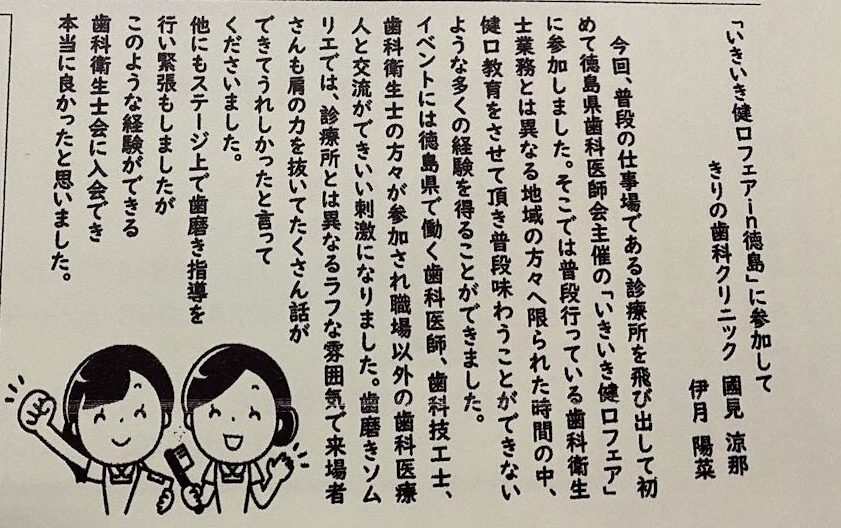 「いきいき健口フェアin徳島」に参加して
きりの歯科クリニック　國見　涼那
伊月　陽菜
今回、普段の仕事場である診療所を飛び出して初
めて徳島県歯科医師会主催の「いきいき健口フェア」
に参加しました。そこでは普段行っている歯科衛生
士業務とは異なる地域の方々へ限られた時間の中、
健口教育をさせて頂き普段味わうことができない
ような多くの経験を得ることができました。
イベントには徳島県で働く歯科医師、歯科技工士、
歯科衛生士の方々が参加され職場以外の歯科医療
人と交流ができいい刺激になりました。歯磨きソム
リエでは、診療所とは異なるラフな雰囲気で来場者
さんも肩の力を抜いてたくさん話が
できてうれしかったと言って
くださいました。
他にもステージ上で歯磨き指導を
行い緊張もしましたが
このような経験ができる
歯科衛生士会に入会でき
本当に良かったと思いました。